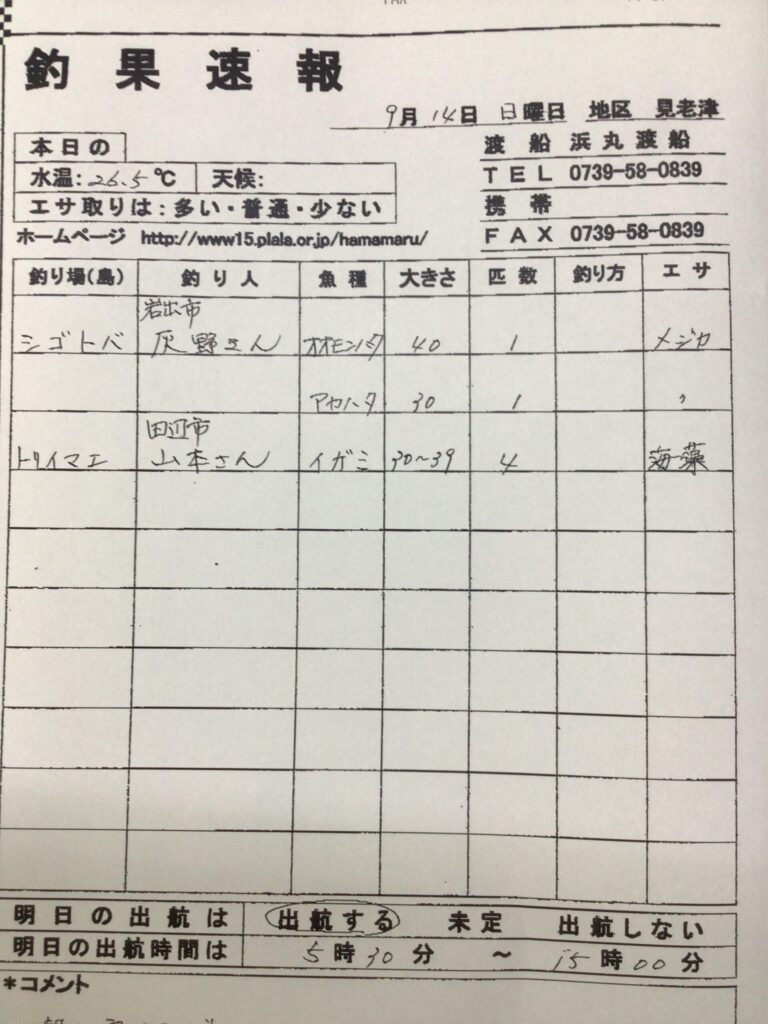 釣果速報
9月14日 日曜日 地区 見老津
本日の
渡船 浜丸渡船
水温:26.5℃ 天候:
TEL 0739-58-0839
エサ取りは:多い・普通・少ない
携帯
ホームページ http://www15.plala.or.jp/hamamaru/
FAX 0739-58-0839
釣り場(島) 釣り人 魚種 大きさ 匹数 釣り方 エサ
岩出市
シゴトバ 灰野さん オオモンハタ 40 1 メジカ
アカハタ 30 1 〃
田辺市
トリイマエ 山本さん イガミ 30~39 4 海藻
明日の出航は 出航する 未定 出航しない
明日の出航時間は 5時30分 ~ 15時00分
*コメント